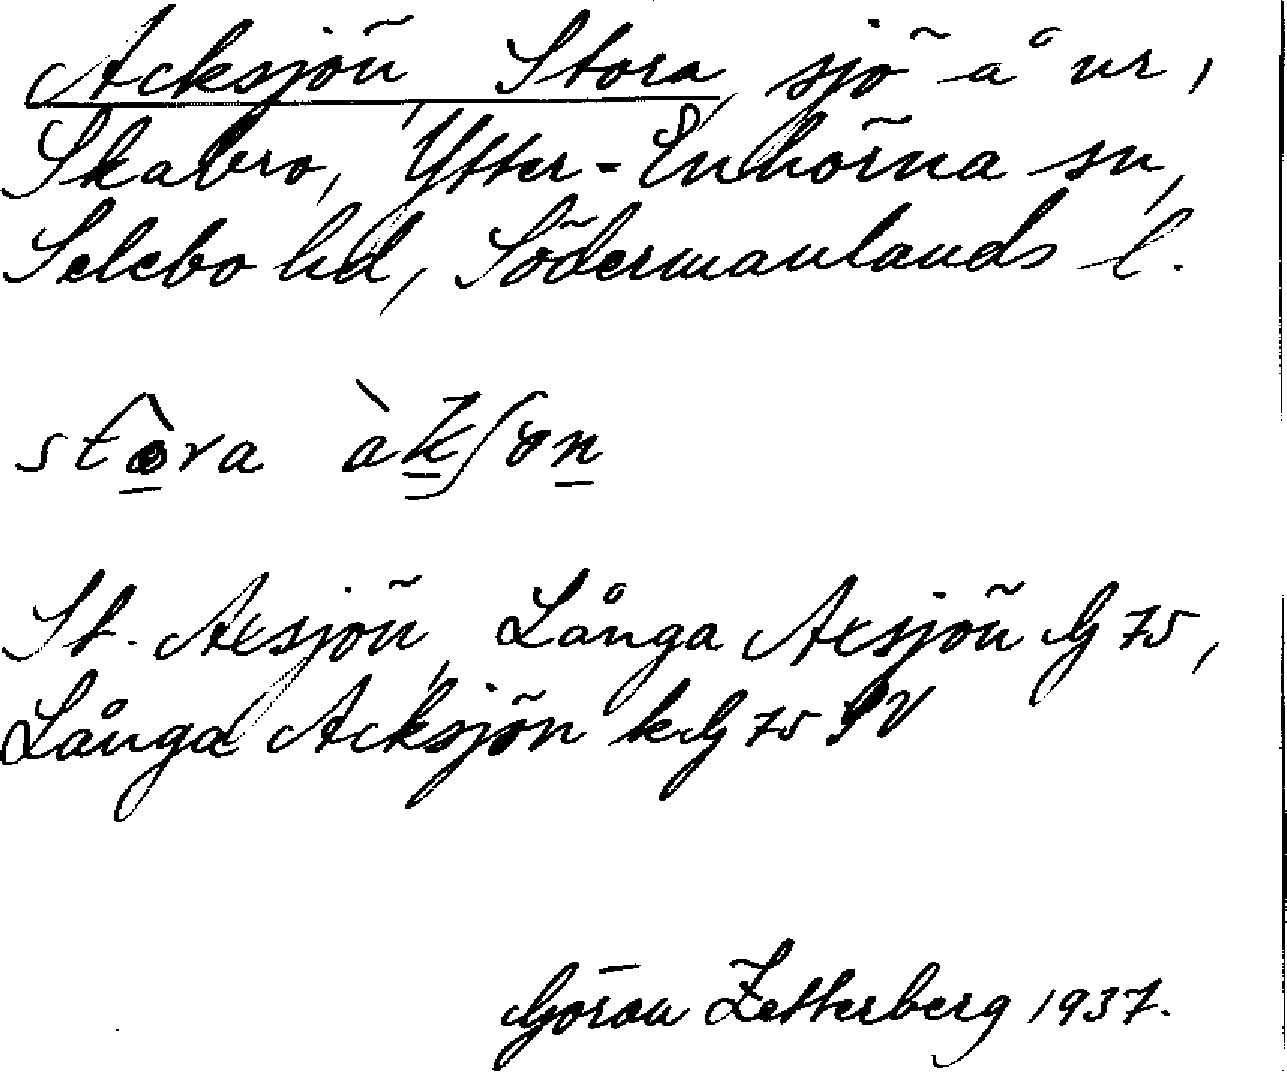 Acksjön, Stora, sjö å ur,
Skabro, Ytter-Enhörna sn,
Selebo hd, Södermanlands l.
stòra àkʃøn
St. Acksjön, Långa Acksjön G 75,
Långa Acksjön kG 75 SV
Göran Zetterberg 1937.